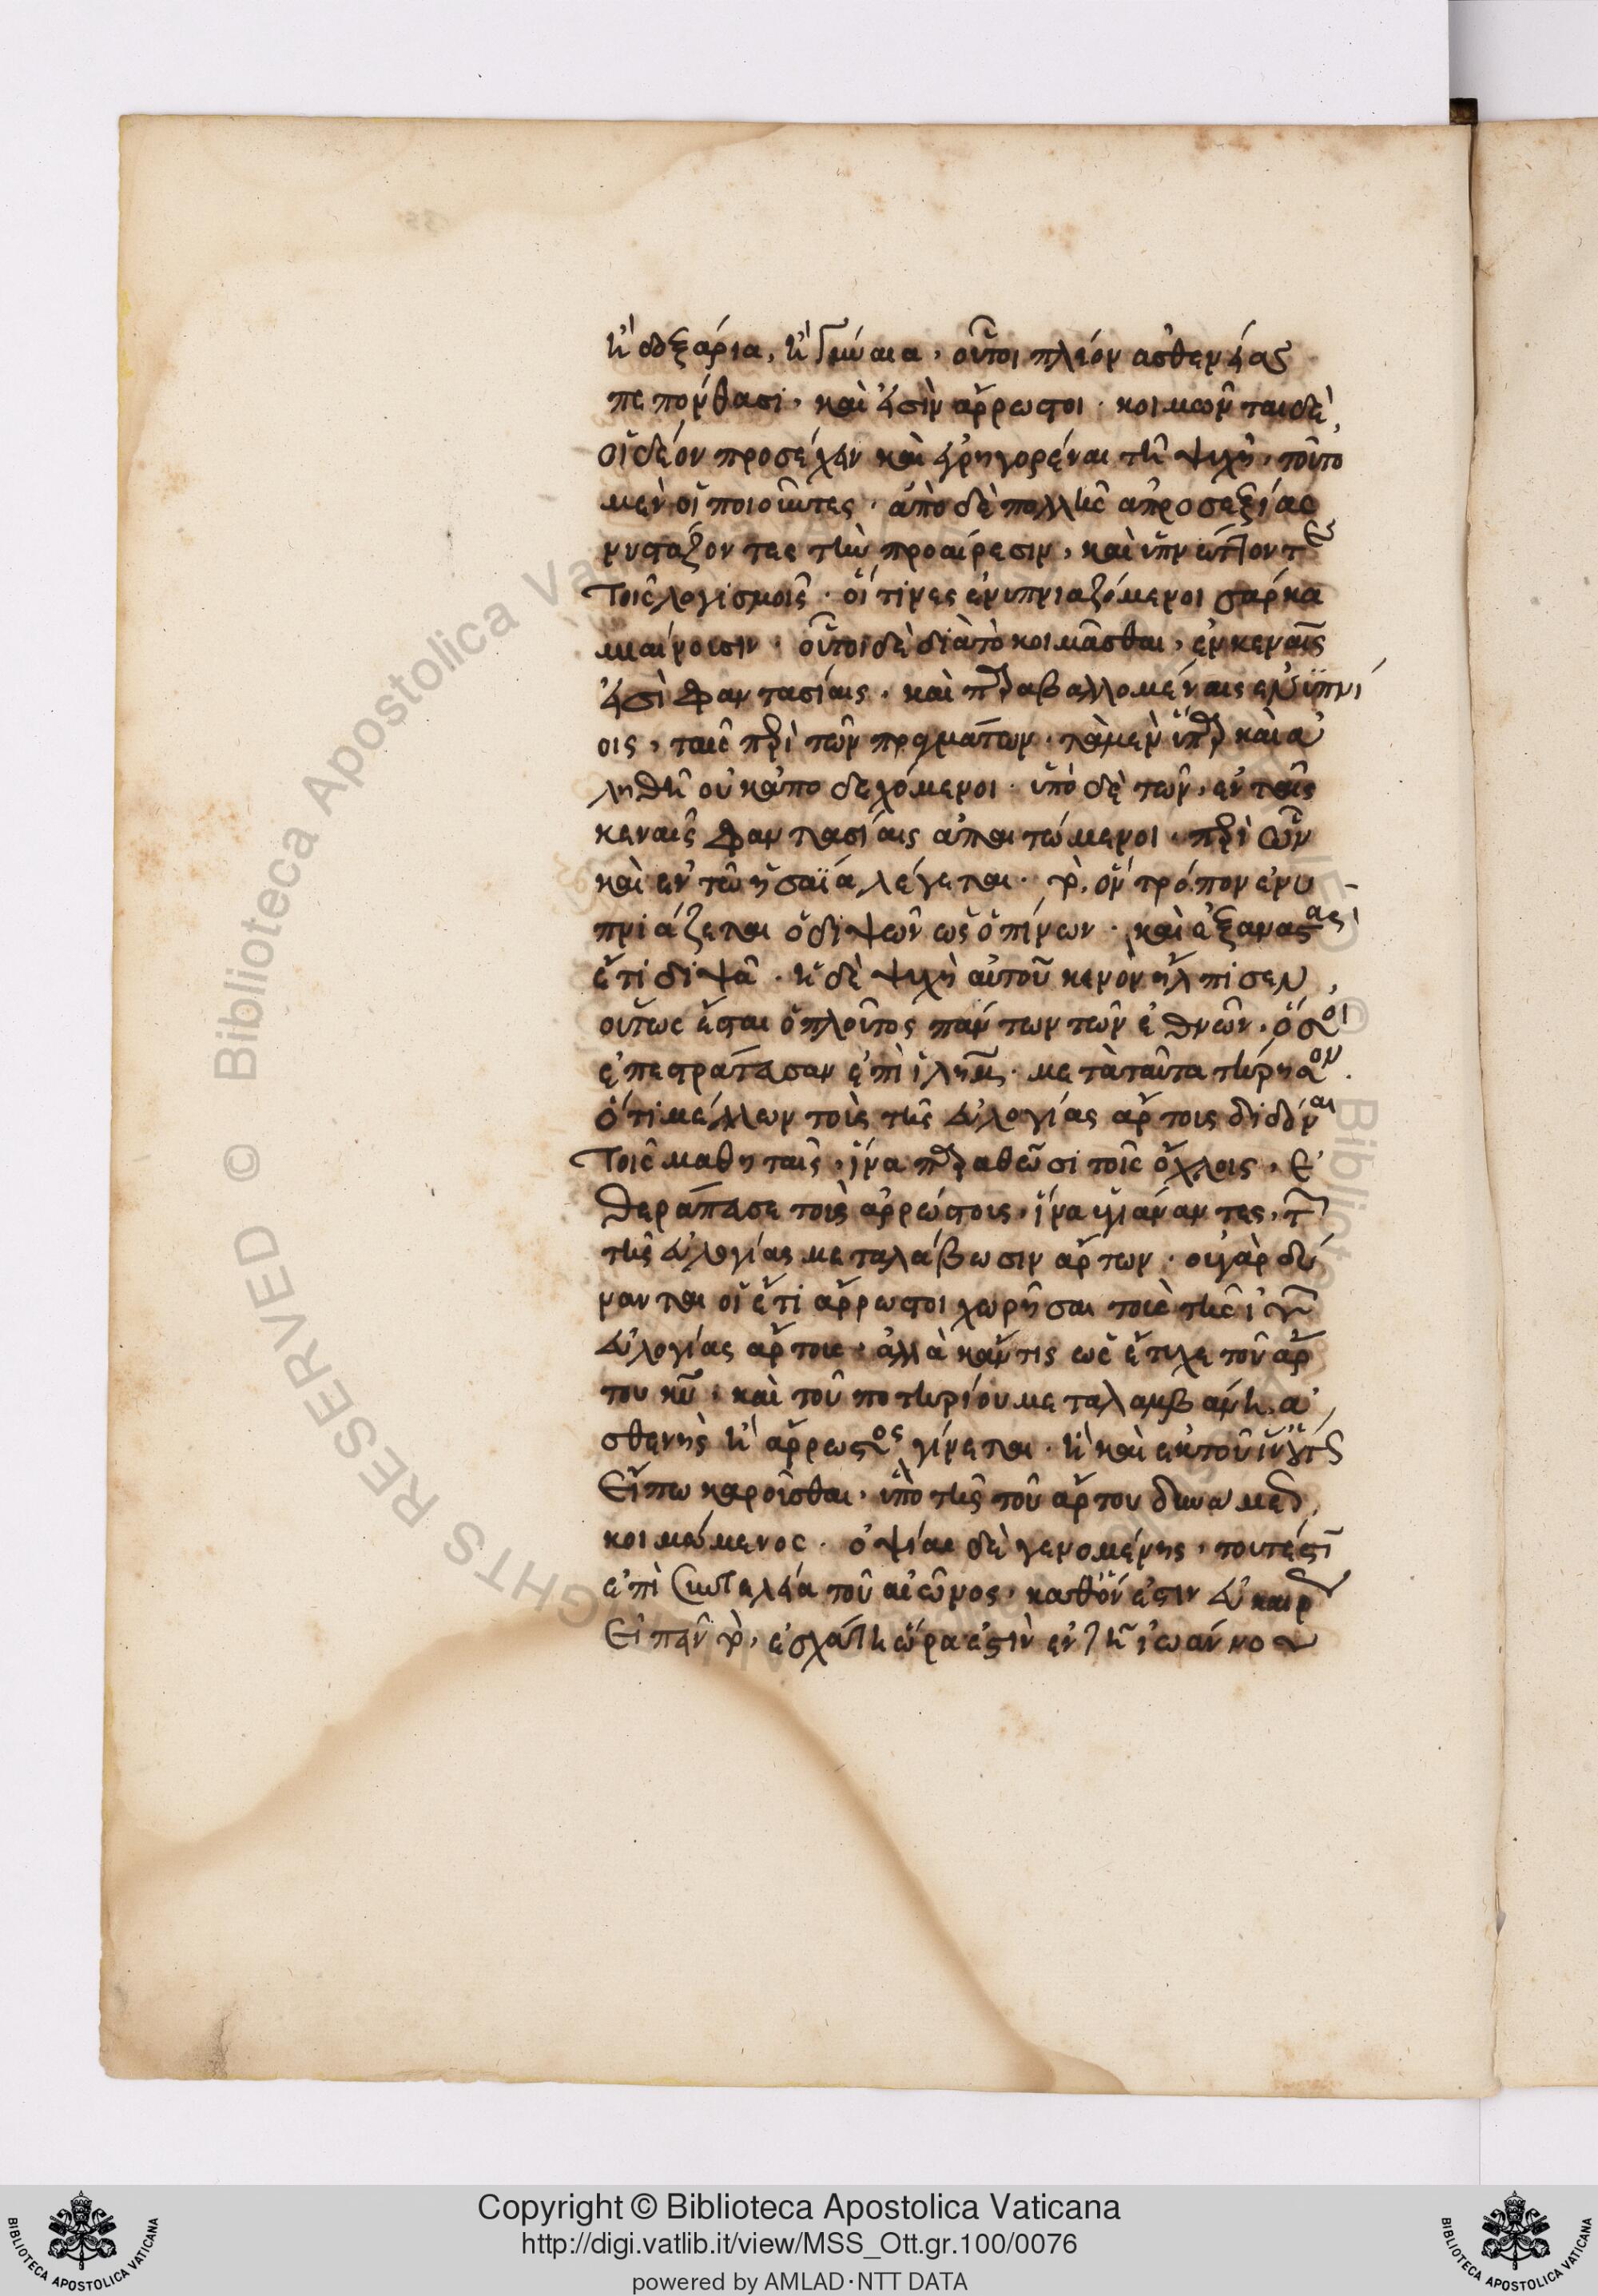 ἢ δοξάρια, ἢ γύναια, οὗτοι πλεῖον ἀσθενείας
πεπόνθασι, καὶ εἰσὶν ἄρρωστοι. κοιμῶνται δὲ,
οἱ δέον προσέχειν καὶ ἐγρηγορέναι τῇ ψυχῇ, τοῦτο
μὲν οὐ ποιοῦντες. ἀπὸ δὲ πολλῆς ἀπροσεξίας
νυστάζοντες τὴν προαίρεσιν, καὶ ὑπνώττοντες
τοῖς λογισμοῖς. οἵτινες ἐνυπνιαζόμενοι σάρκα
μιαίνουσιν. οὗτοι δὲ διὰ τὸ κοιμᾶσθαι, ἐν κεναῖς
εἰσὶ φαντασίαις, καὶ παραβαλλομέναις ἐνυπνί
οις, ταῖς περὶ τῶν πραγμάτων. τὰ μὲν ὕπαρ καὶ ἀ
ληθῆ οὐκ ἀποδεχόμενοι. ὑπὸ δὲ τῶν, ἐν ταῖς
κεναῖς φαντασίαις ἀπατώμενοι. περὶ ὧν
καὶ ἐν τῷ ἡσαΐᾳ λέγεται. ὃν τρόπον ἐνυ
πνιάζεται ὁ διψῶν ὡς ὁ πίνων. καὶ ἐξαναστὰς
ἔτι διψᾷ. ἡ δὲ ψυχὴ αὐτοῦ κενὸν ἤλπισεν,
οὕτως ἔσται ὁ πλοῦτος πάντων τῶν ἐθνῶν, ὅσοι
ἐπεστράτευσαν ἐπὶ ἰλημ. μετὰ ταῦτα τήρησον.
ὅτι μέλλων τοὺς τῆς εὐλογίας ἄρτους διδόναι
τοῖς μαθηταῖς, ἵνα παραθῶσι τοῖς ὄχλοις,
ἐθεράπευσε τοὺς ἀρρώστους, ἵνα ὑγιάναντες, τῶν
τῆς εὐλογίας μεταλάβωσιν ἄρτων. οὐ γὰρ δύ
νανται οἱ ἔτι ἄρρωστοι χωρῆσαι τοὺς τῆς ἰυ
εὐλογίας ἄρτους. ἀλλὰ κἄν τις ὡς ἔτυχε τοῦ ἄρ
του κυ, καὶ τοῦ ποτηρίου μεταλαμβάνῃ, ἀ
σθενὴς ἢ ἄρρωστος γίνεται. ἢ καὶ ἐκ τοῦ
εἴπω καροῦσθαι, ὑπὸ τῆς τοῦ ἄρτου δυνάμεως
κοιμώμενος. ὀψίας δὲ γενομένης, τουτέστι
ἐπὶ συντελείᾳ τοῦ αἰῶνος, καθ᾽ ὅν ἐστιν εὔκαιρον
εἰπεῖν, ἐσχάτη ὥρα ἐστὶν ἐν τῇ ἰωάννου
Copyright © Biblioteca Apostolica Vaticana
http://digi.vatlib.it/view/MSS_Ott.gr.100/0076
powered by AMLAD·NTT DATA